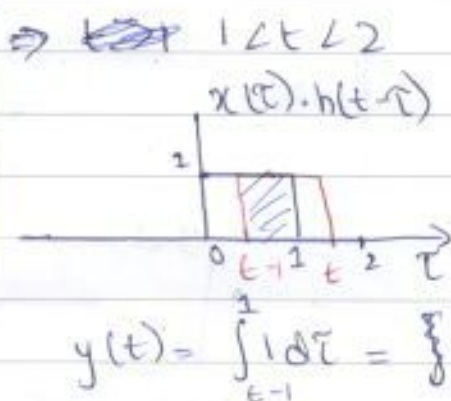 ⇒ 1 < t < 2
x(τ).h(t-τ)
1
0 t-1 1 t 2 τ
y(t) = ∫_{t-1}^{1} 1 dτ = {